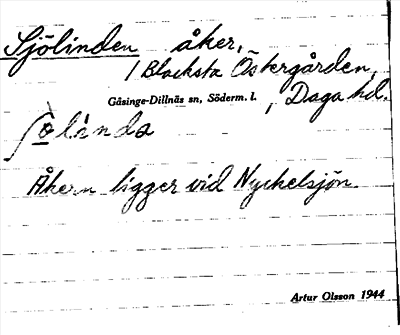 Sjölinden åker,
/ Blacksta Östergården,
Gåsinge-Dillnäs sn, Söderm. l., Daga hd.
ʃò̱lìnda
Åkern ligger vid Nyckelsjön.
Artur Olsson 1944